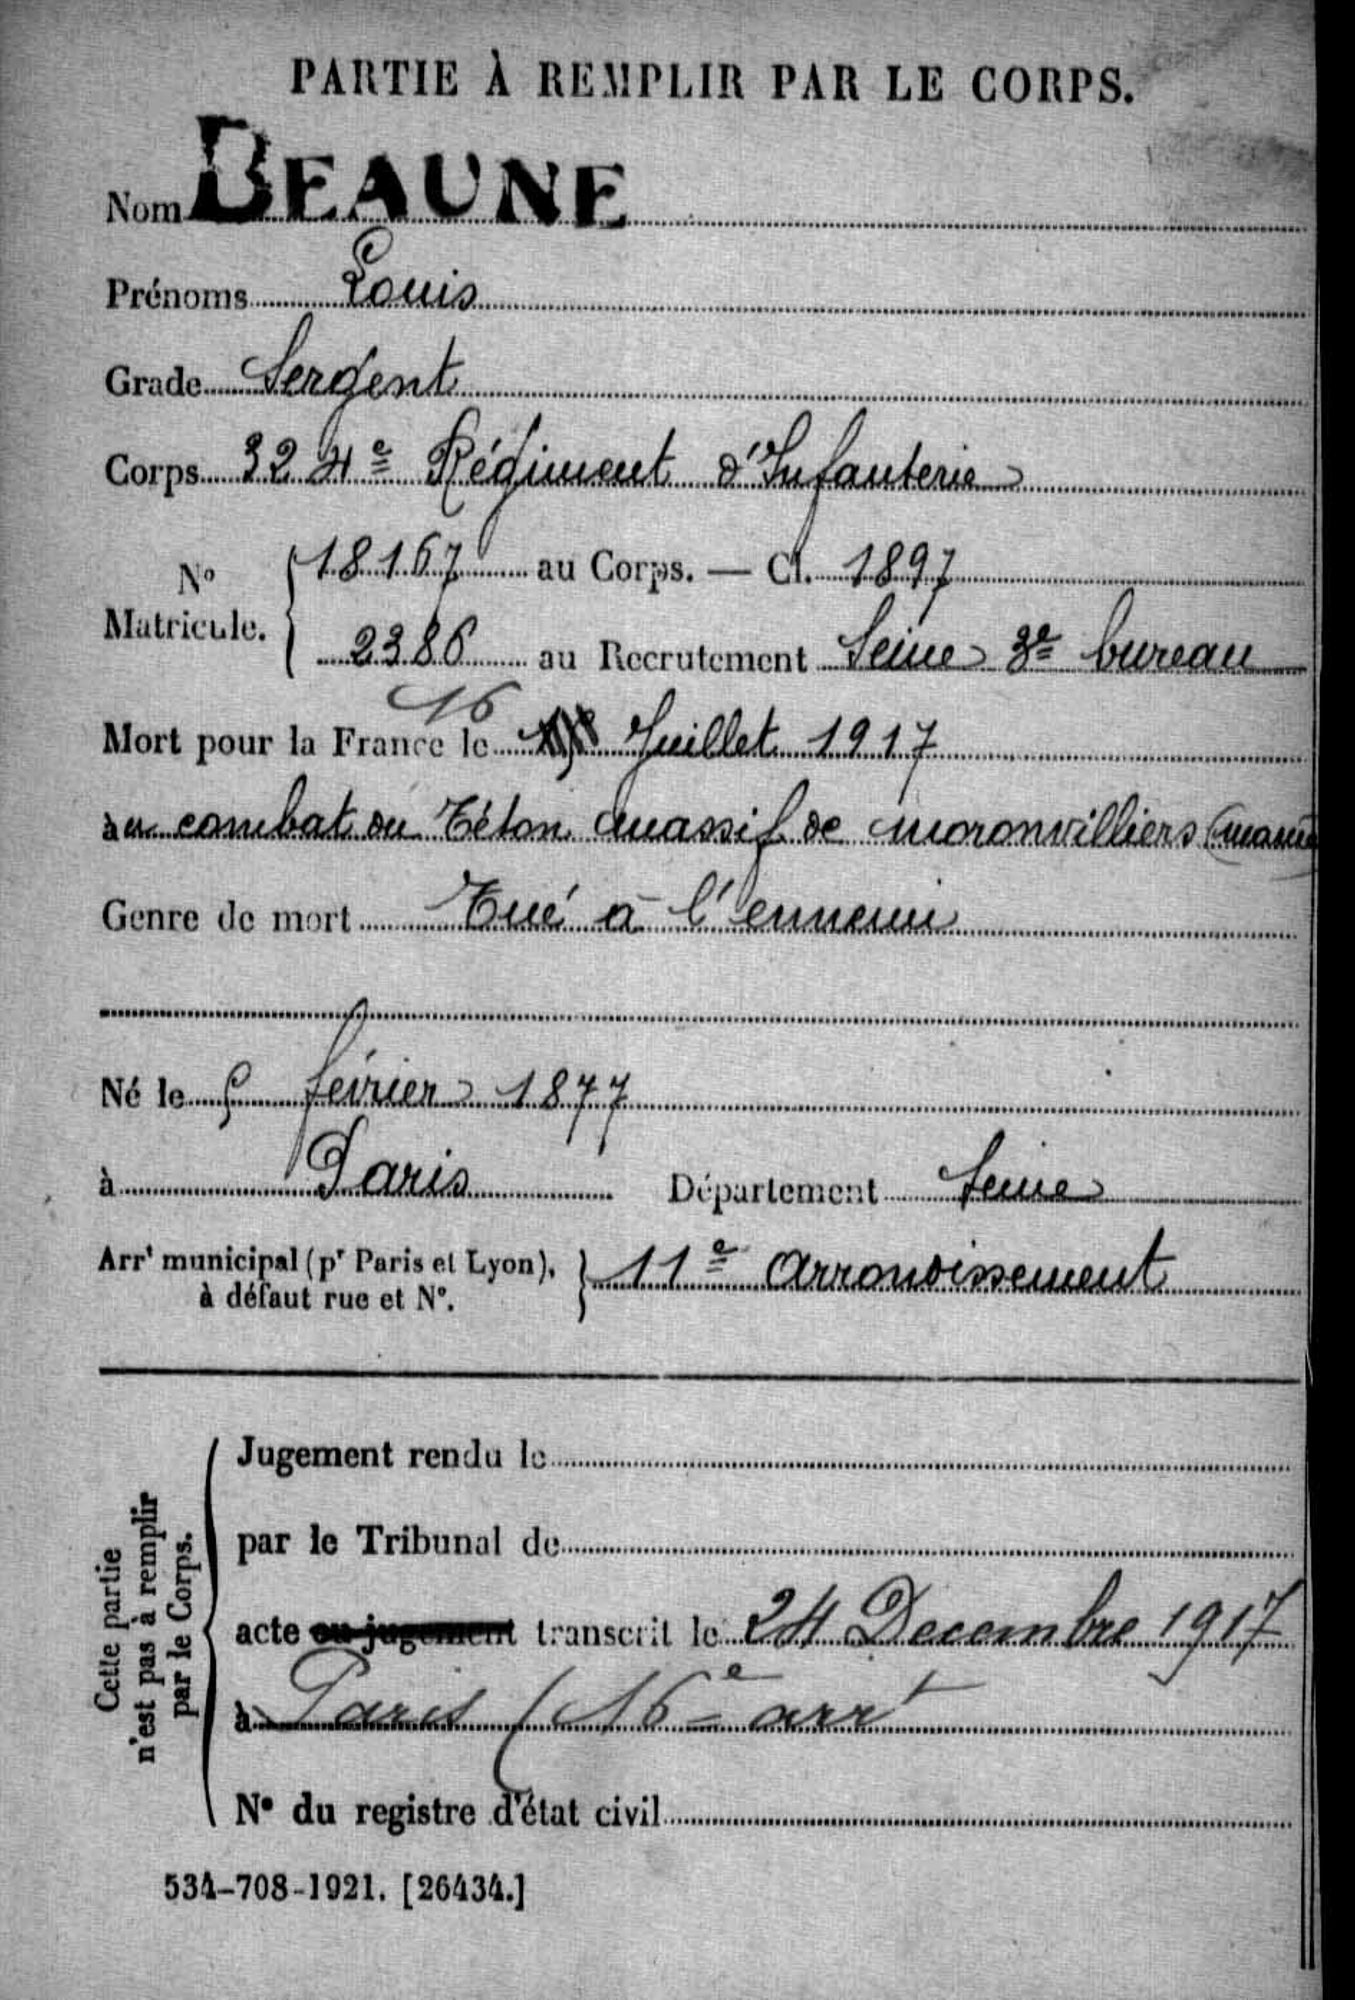 PARTIE À REMPLIR PAR LE CORPS.
Nom BEAUNE
Prénoms Louis
Grade Sergent
Corps 324e Régiment d'Infanterie
No Matricule. { 18167 au Corps. — Cl. 1897
2386 au Recrutement Seine 3e bureau
16
Mort pour la France le Juillet 1917
au combat du Téton massif de moronvilliers (marne
Genre de mort Tué à l'ennemi
Né le 5 février 1877
à Paris Département Seine
Arrt municipal (pr Paris et Lyon), à défaut rue et No. } 11e arrondissement
Cette partie n'est pas à remplir par le Corps.
Jugement rendu le
par le Tribunal de
acte ou jugement transcrit le 24 Decembre 1917
à Paris (16e arrt
No du registre d'état civil
534-708-1921. [26434.]